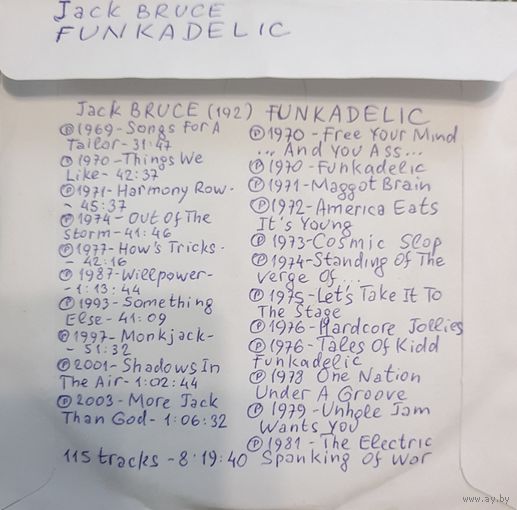 Jack BRUCE
FUNKADELIC
Jack BRUCE (192)
Ⓟ1969-Songs For A
Tailor-31:47
Ⓟ1970-Things We
Like-42:37
Ⓟ1971-Harmony Row-
-45:37
Ⓟ1974-Out Of The
Storm-41:46
Ⓟ1977-How's Tricks-
-42:16
Ⓟ1987-Willpower-
-1:13:44
Ⓟ1993-Something
Else-41:09
Ⓟ1997-Monkjack-
-51:32
Ⓟ2001-Shadows In
The Air-1:02:44
Ⓟ2003-More Jack
Than God-1:06:32
115 tracks-8:19:40
FUNKADELIC
Ⓟ1970-Free Your Mind
...And You Ass...
Ⓟ1970-Funkadelic
Ⓟ1971-Maggot Brain
Ⓟ1972-America Eats
It's Young
Ⓟ1973-Cosmic Slop
Ⓟ1974-Standing Of The
Verge Of...
Ⓟ1975-Let's Take It To
The Stage
Ⓟ1976-Hardcore Jollies
Ⓟ1976-Tales Of Kidd
Funkadelic
Ⓟ1978 One Nation
Under A Groove
Ⓟ1979-Unhole Jam
Wants You
Ⓟ1981-The Electric
Spanking Of War
www.ay.by